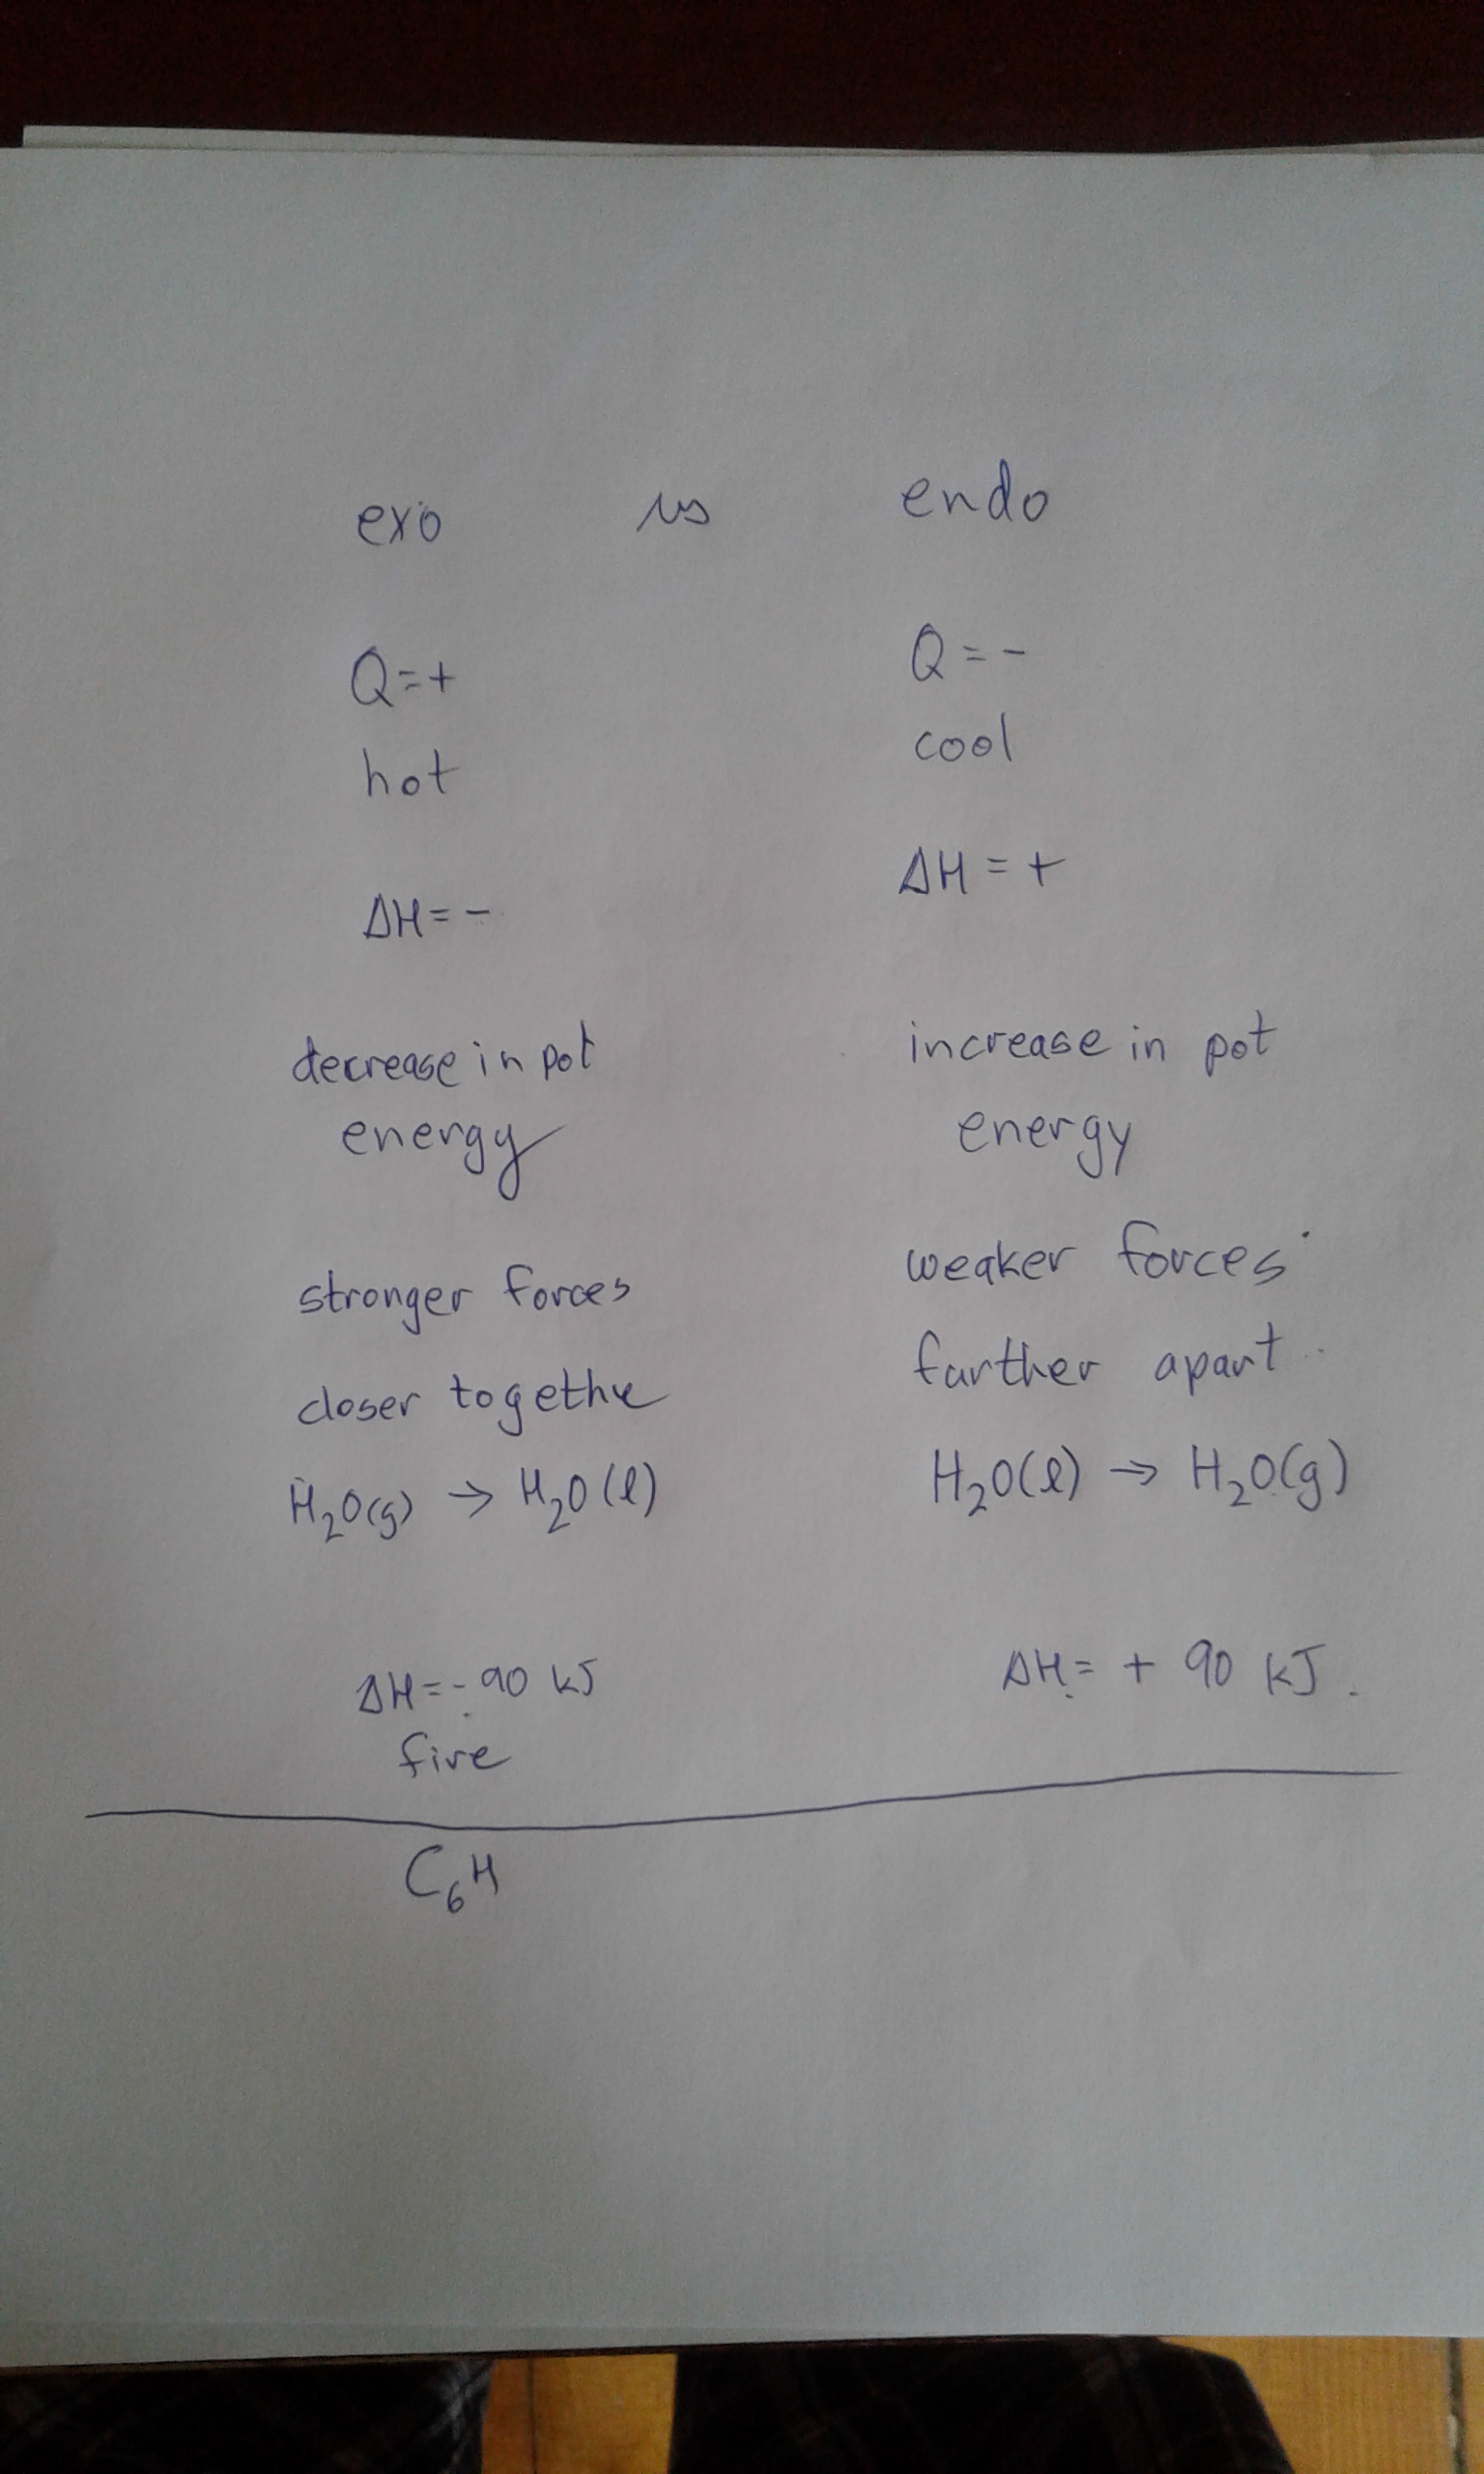 exo vs endo
Q=+
Q = -
hot
cool
ΔH = -
ΔH = +
decrease in pot
energy
increase in pot
energy
stronger forces
weaker forces
closer togethe
further apart
H₂O(g) → H₂O(l)
H₂O(l) → H₂O(g)
ΔH = - 90 kJ
ΔH = + 90 kJ.
fire
C₆H